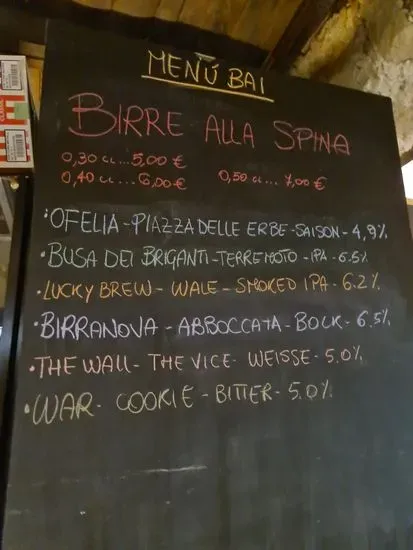 MENÚ BAI
BIRRE ALLA SPINA
0,30 cl....5,00 €
0,40 cl....6,00 € 0,50 cl....7,00 €
•OFELIA - PIAZZA DELLE ERBE - SAISON - 4,9%
•BUSA DEI BRIGANTI - TERREMOTO - IPA - 6.5%
•LUCKY BREW - WALE - SMOKED IPA - 6.2%
•BIRRANOVA - ABBOCCATA - BOCK - 6.5%
•THE WALL - THE VICE - WEISSE - 5.0%
•WAR - COOKIE - BITTER - 5.0%